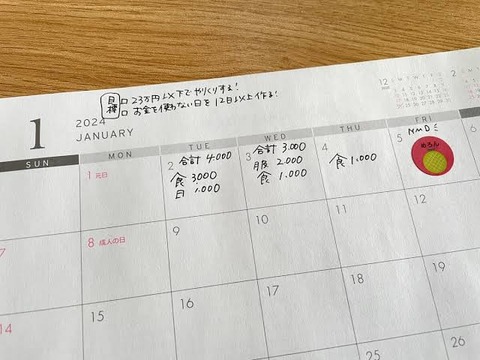 目標 □ 23万円以下でやりくりする!
□ お金を使わない日を12日以上作る!
1 2024
JANUARY
12
2
SUN MON TUE WED THU FRI
1 元日
2 合計 4.000
食 3.000
日 1.000
3 合計 3.000
服 2.000
食 1.000
4
食 1.000
5 NMD
めろん
6
7 8 成人の日 9 10 11 12
14 15 16 17 18 19
25 26